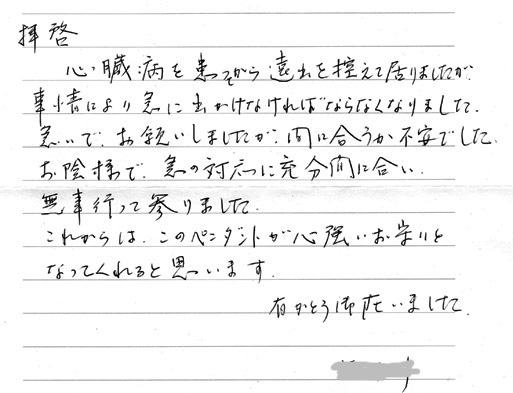 拝啓
心臓病を患ってから遠出を控えて居りましたが、
事情により急に出かけなければならなくなりました。
急いで、お願いしましたが、間に合うか不安でした。
お陰様で、急の対応に充分間に合い、
無事行って参りました。
これからは、このペンダントが心強いお守りと
なってくれると思います。
有がとう御座いました。